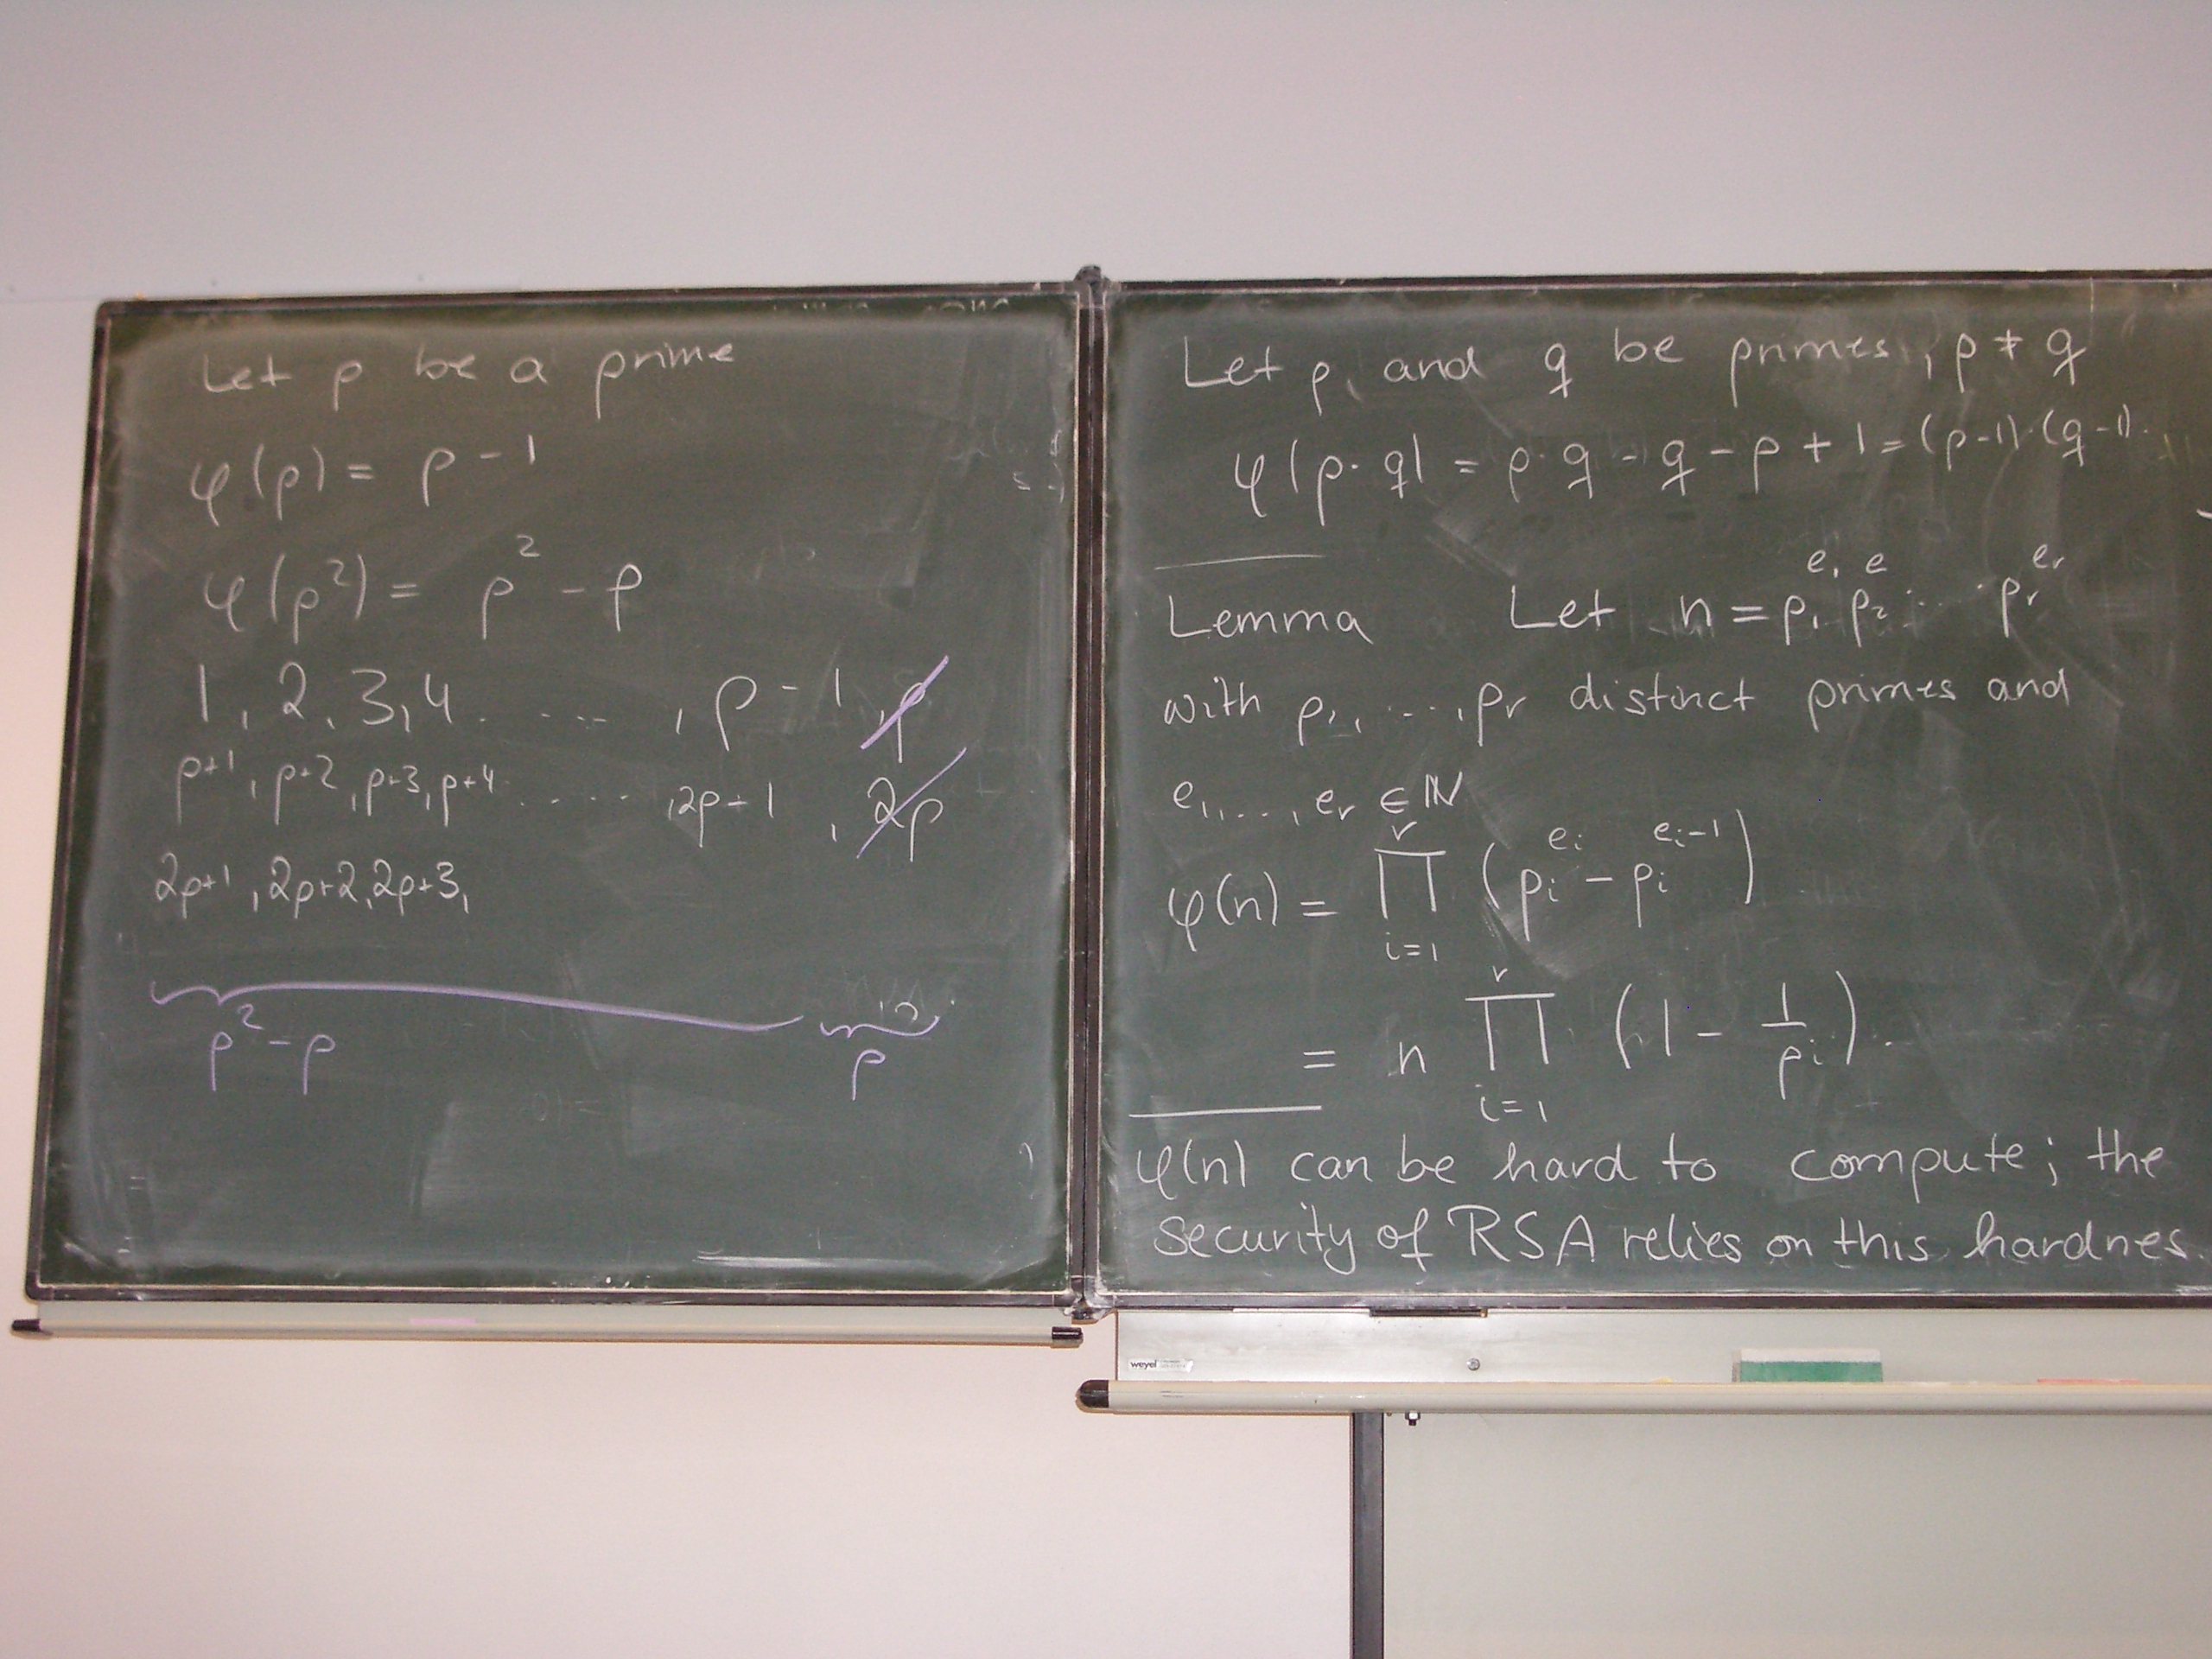 Let p be a prime
φ(p) = p - 1
φ(p²) = p² - p
1, 2, 3, 4 ..... , p - 1, p
p+1, p+2, p+3, p+4 ..... , 2p-1, 2p
2p+1, 2p+2, 2p+3,
p² - p p
Let p, and q be primes, p ≠ q
φ(p·q) = p·q - q - p + 1 = (p-1)·(q-1).
Lemma Let n = p₁^e₁ p₂^e ... pᵣ^eᵣ
with p₁, ..., pᵣ distinct primes and
e₁, ..., eᵣ ∈ ℕ
φ(n) = ∏_{i=1}^{r} (pᵢ^{eᵢ} - pᵢ^{eᵢ-1})
= n ∏_{i=1}^{r} (1 - 1/pᵢ).
φ(n) can be hard to compute; the
security of RSA relies on this hardnes.
weyel